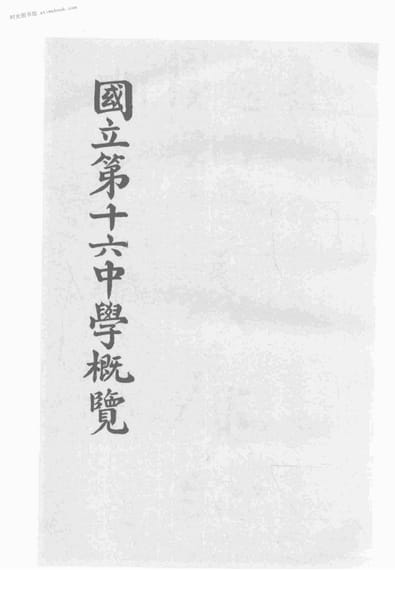 时光图书馆 atimebook.com
國立第十六中學概覽